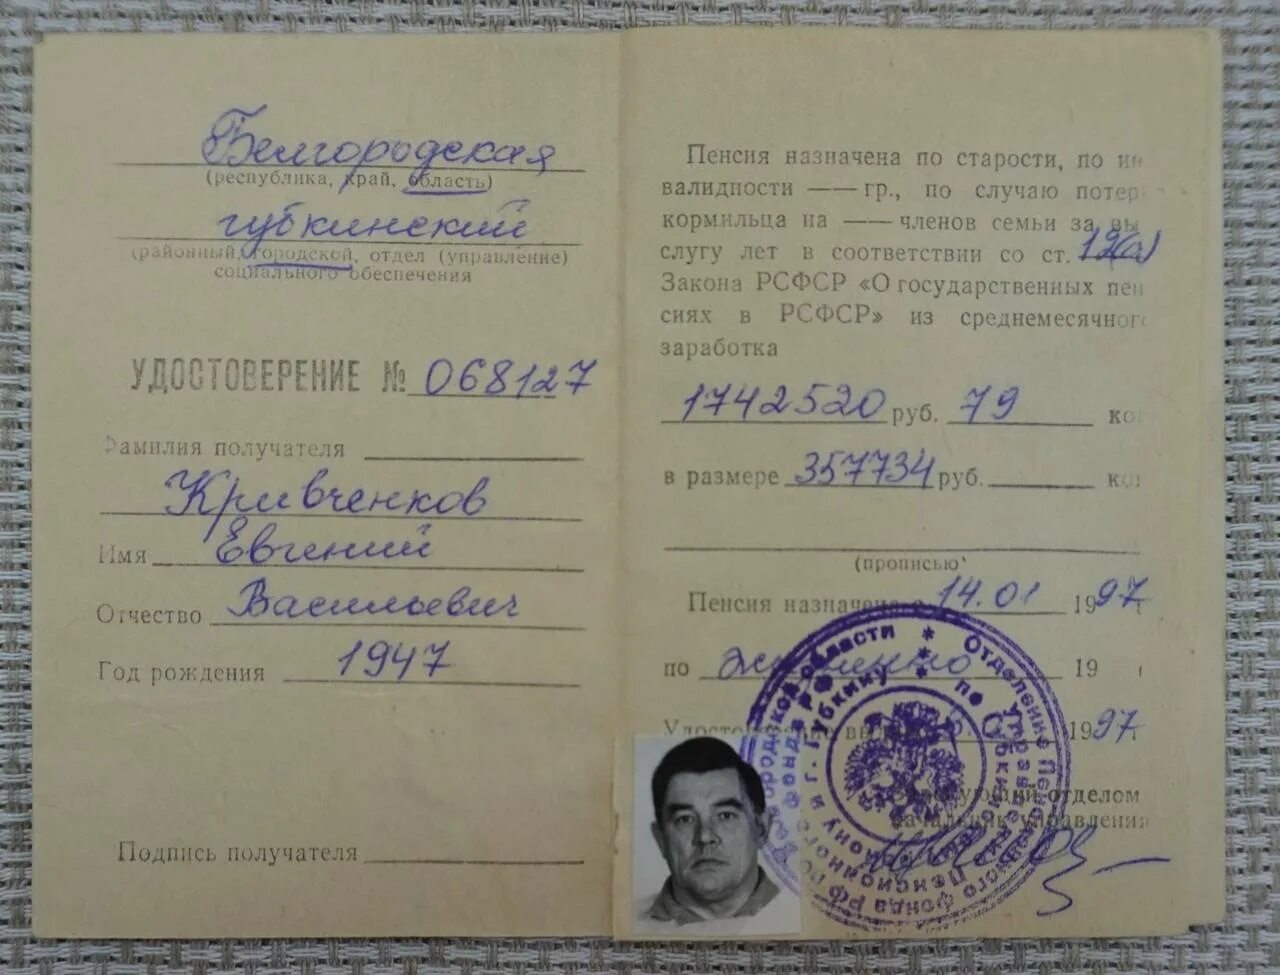 Белгородская
(республика, край, область)
губкинский
(районный, городской, отдел (управление)
социального обеспечения
УДОСТОВЕРЕНИЕ № 068127
Фамилия получателя
Кривченков
Имя Евгений
Отчество Васильевич
Год рождения 1947
Подпись получателя
Пенсия назначена по старости, по ин
валидности —— гр., по случаю потер
кормильца на —— членов семьи за вы
слугу лет в соответствии со ст. 12(а)
Закона РСФСР «О государственных пен
сиях в РСФСР» из среднемесячного
заработка
1742520 руб. 79 ко
в размере 357734 руб. ко
(прописью)
Пенсия назначена с 14.01 1997 г
по пожизненно 19 г
Удостоверение выдано 1997 г
отделом
начальник управления
* Отделение Пенсионного фонда РФ по Белгородской области *
* Управление Пенсионного фонда РФ
по г. Губкину и Губкинскому району *